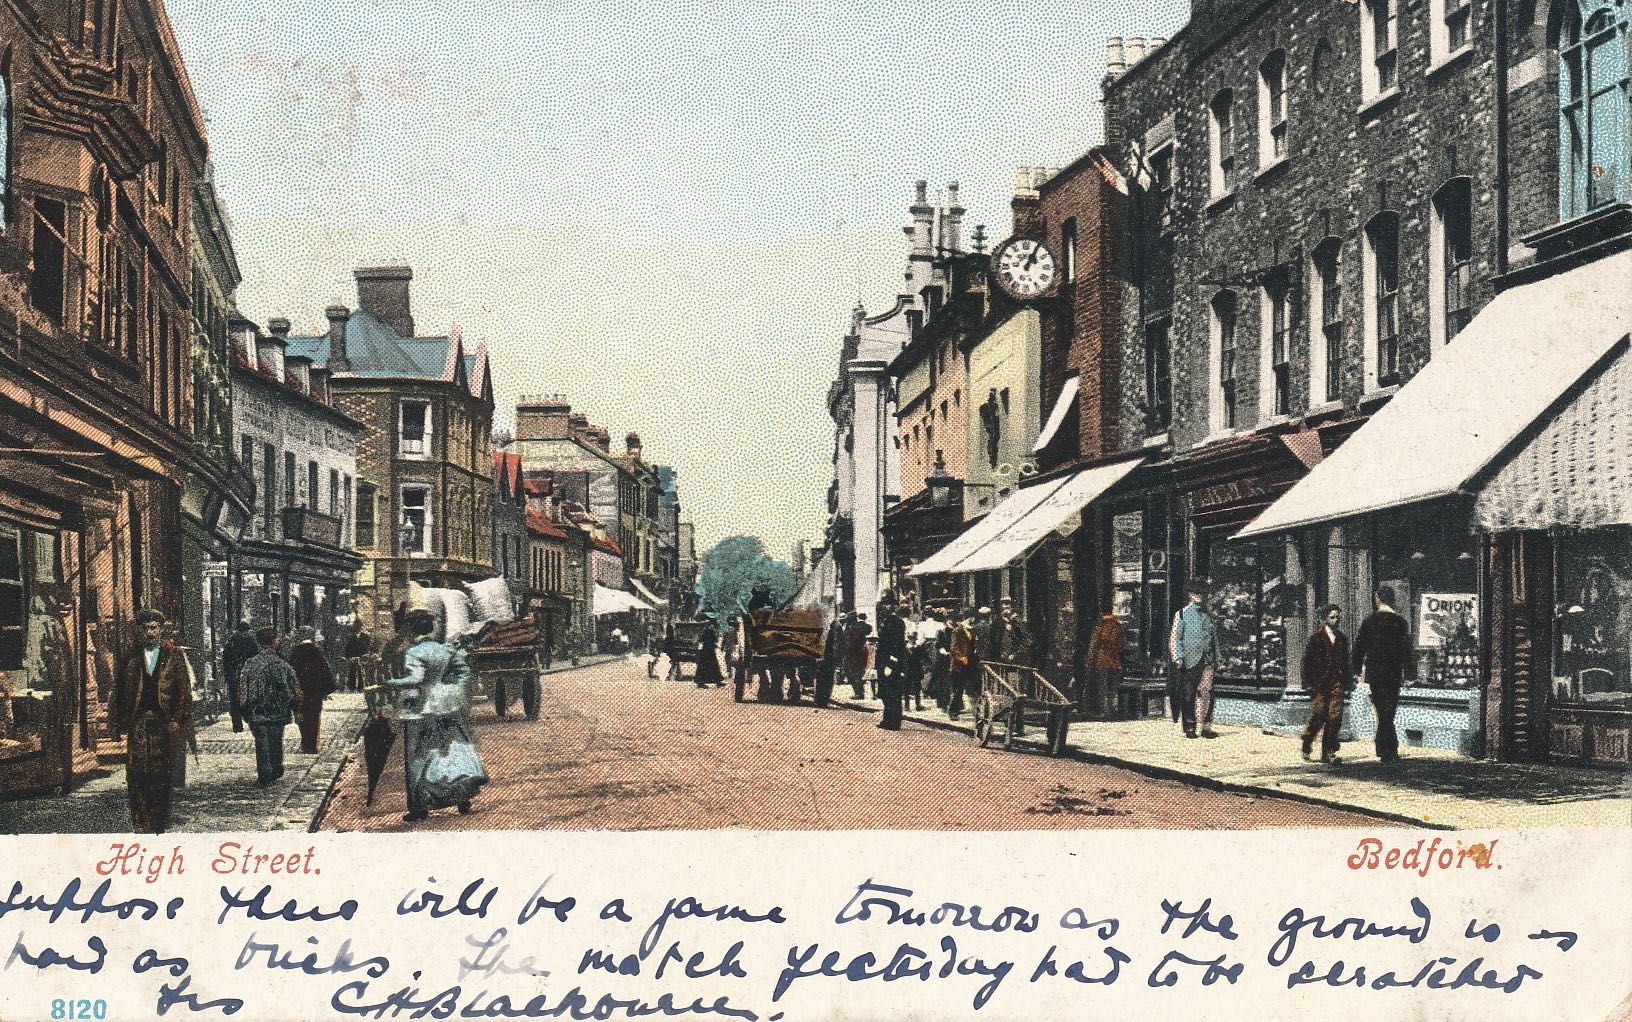 ORION
High Street. Bedford.
suppose there will be a game tomorrow as the ground is as
hard as bricks. The match yesterday had to be scratched
8120 Yrs C H Blackburne.